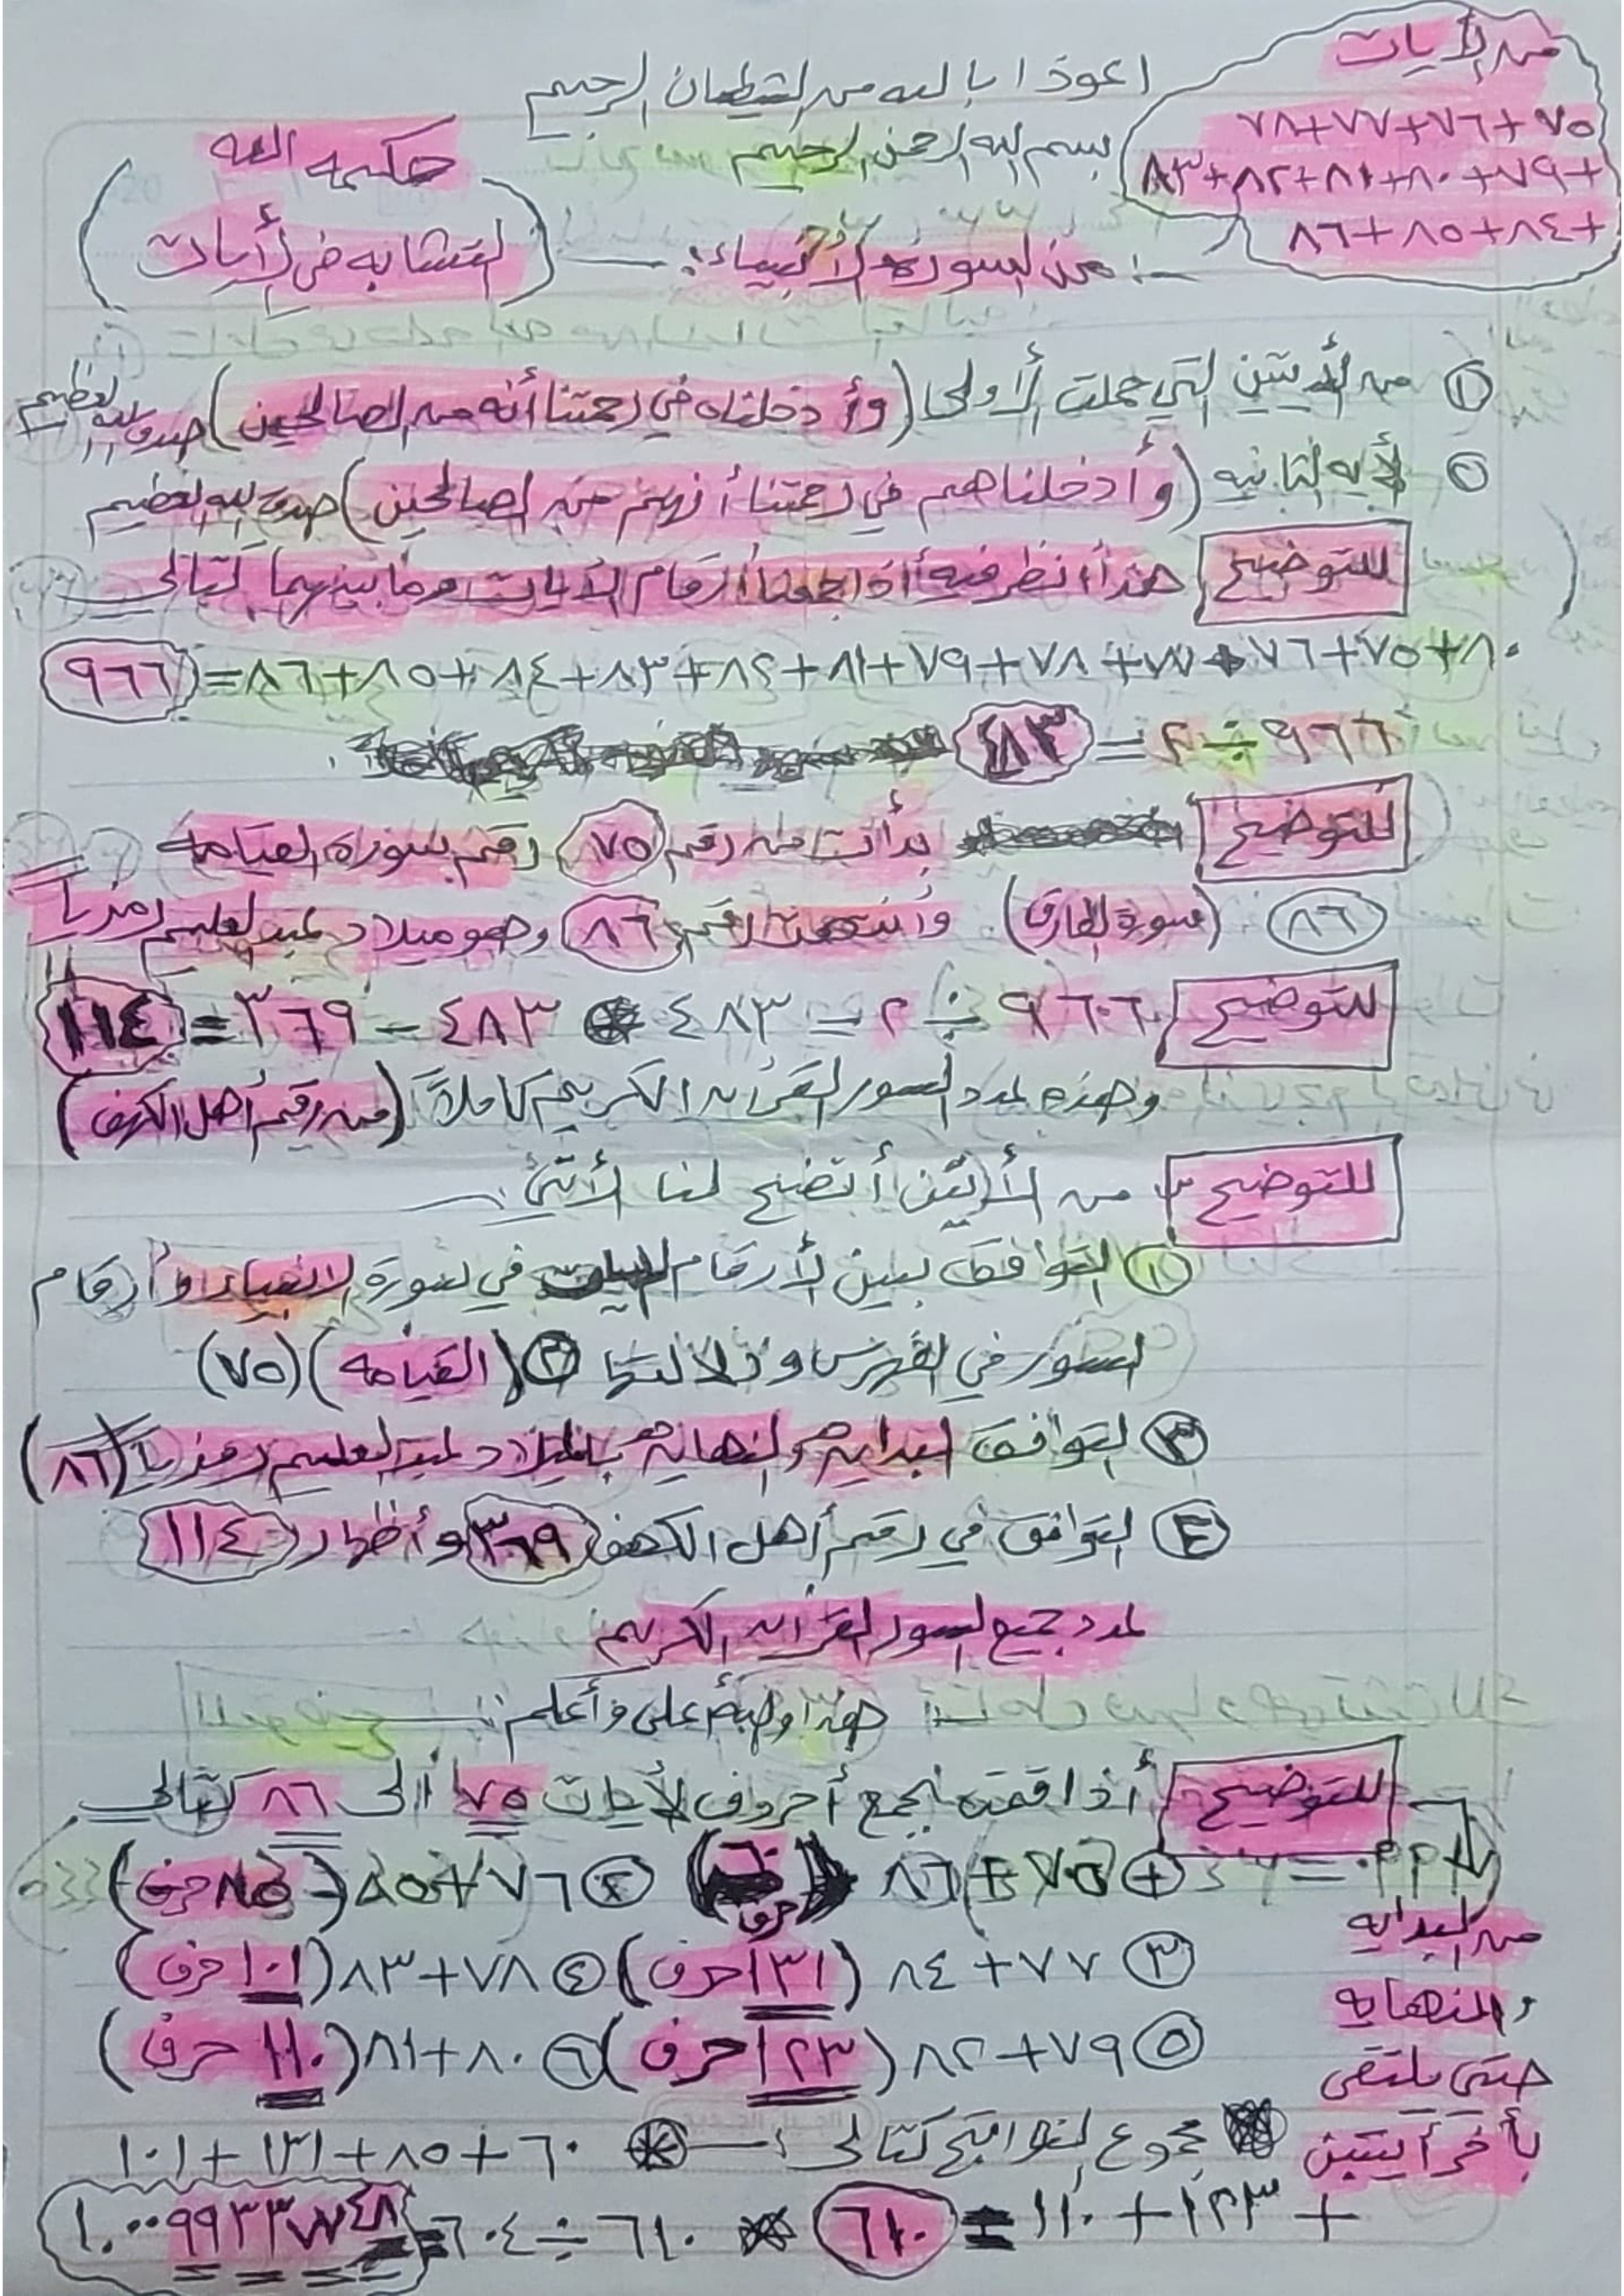 من الأيات
٧٥+٧٦+٧٧+٧٨
+٧٩+٨٠+٨١+٨٢+٨٣
+٨٤+٨٥+٨٦
اعوذ ابالله من الشطيان الرجيم
بسم الله الرحمن الرحيم
حكمه الله
(التشابه في الأيات)
من سورة الأنبياء:
① من الأيتين التي حملت الأولى (وأدخلناه في رحمتنا أنه من الصالحين) صدق الله العظيم
② الأيه الثانيه (وأدخلناهم في رحمتنا أنهم من الصالحين) صدق الله العظيم
للتوضيح هنا أنظر فيه أذا جمعنا أرقام الأيات وما بينهما كتالى
٨٠+٧٥+٧٦+٧٧+٧٨+٧٩+٨١+٨٢+٨٣+٨٤+٨٥+٨٦=٩٦٦
٩٦٦÷٢=٤٨٣
للتوضيح بدأت من رقم ٧٥ رقم سورة القيامه
٨٦ (سورة الطارق) وأنتهت لرقم ٨٦ وهو ميلاد عبد العليم رمزيا
للتوضيح ٩٦٦÷٢=٤٨٣ ٤٨٣-٣٦٩=١١٤
وهذه عدد السور القرأن الكريم كاملاً (من رقم أهل الكهف)
للتوضيح من الأيتين أتضح لنا الأتى:
① التوافق بين الأرقام في سورة الانبياء وأرقام
السور في الفهرس ودلالتها ② (القيامه) (٧٥)
③ التوافق البدايه والنهايه بالميلاد عبد العليم رمزيا (٨٦)
④ التوافق في رقم أهل الكهف ٣٦٩ وأظهار ١١٤
عدد جميع السور القرأن الكريم
هذا والله أعلى وأعلم:
للتوضيح أذا قمنه بجمع أحروف الأيات ٧٥ ألى ٨٦ كتالى
① ٧٥+٨٦ (٦٠ حرف) ② ٧٦+٨٥ (٨٥ حرف)
③ ٧٧+٨٤ (١٣١ حرف) ④ ٧٨+٨٣ (١٠١ حرف)
⑤ ٧٩+٨٢ (١٢٣ حرف) ⑥ ٨٠+٨١ (١١٠ حرف)
من البدايه
والنهايه
حتى يلتقى
بأخر أيتين
مجموع النواتج كتالى: ٦٠+٨٥+١٣١+١٠١
+١٢٣+١١٠=٦١٠ ٦١٠÷٦٠٤=١.٠٠٩٩٣٣٧٧٤٨